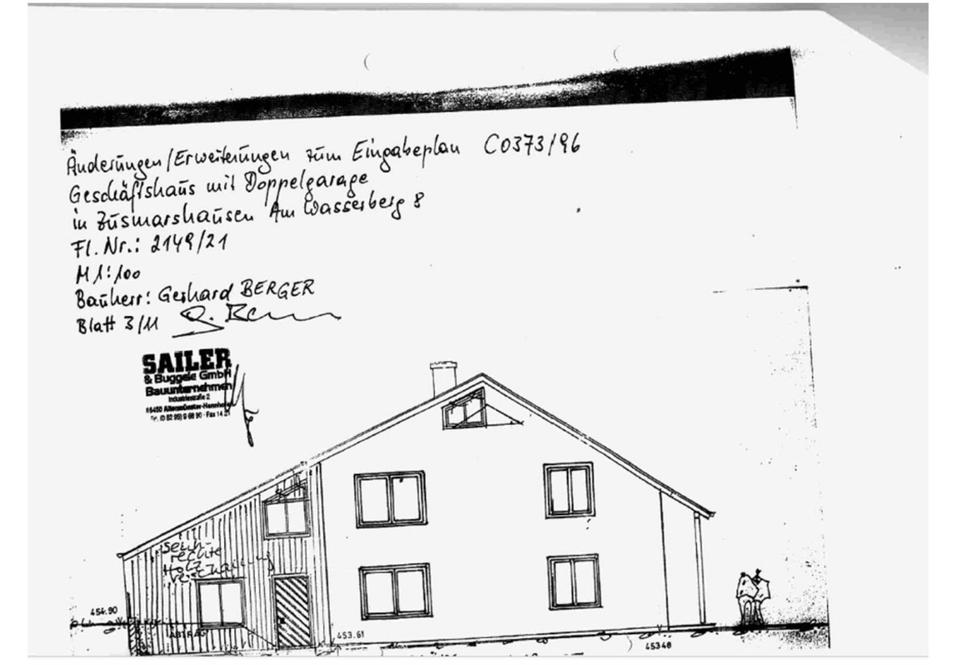 Änderungen/Erweiterungen zum Eingabeplan C0373/96
Geschäftshaus mit Doppelgarage
in Zusmarshausen Am Wasserberg 8
Fl. Nr.: 2149/21
M 1:100
Bauherr: Gerhard BERGER
Blatt 3/11
SAILER
& Buggele GmbH
Bauunternehmen
Industriestraße 2
Senk-
rechte
Holz
verschalung
454.90
ABTRAG
453.61
453.48